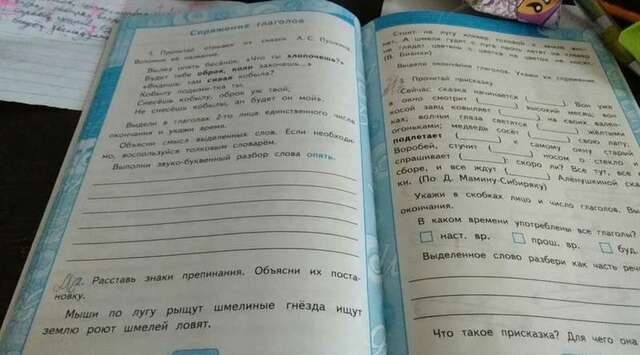 Спряжение глаголов
1. Прочитай отрывок из сказки А. С. Пушкина.
Вспомни её название.
Вылез опять бесёнок. «Что ты хлопочешь?
Будет тебе оброк, коли захочешь...»
«Видишь: там сивая кобыла?
Кобылу подыми-тка ты,
Снесёшь кобылу, оброк уж твой;
Не снесёшь кобылы, ан будет он мой».
Выдели в глаголах 2-го лица единственного числа
окончания и укажи время.
Объясни смысл выделенных слов. Если необходи-
мо, воспользуйся толковым словарём.
Выполни звуко-буквенный разбор слова опять.
2. Расставь знаки препинания. Объясни их поста-
новку.
Мыши по лугу рыщут шмелиные гнёзда ищут
землю роют шмелей ловят.
Стоит на лугу клевер головой с земле
А шмели гудят с луга прочь летят на клевер
не глядят цветень с цветка на цветок не носят
(В. Бианки)
Выдели окончания глаголов. Укажи их спряжение.
Прочитай присказку.
Сейчас сказка начинается (      ). Вон уже
в окно смотрит (      ) высокий месяц; вон
косой заяц ковыляет (      ) на своих вален-
ках; волчьи глаза светятся (      ) жёлтыми
огоньками; медведь сосёт (      ) свою лапу;
подлетает (      ) к самому окну старый
Воробей, стучит (      ) носом о стекло
спрашивает (      ): скоро ли? Все тут, все
сборе, и все ждут (      ) Алёнушкиной сказ-
ки. (По Д. Мамину-Сибиряку)
Укажи в скобках лицо и число глаголов.
окончания.
В каком времени употреблены все глаголы?
наст. вр. прош. вр. буд.
Выделенное слово разбери как часть речи
Что такое присказка? Для чего она